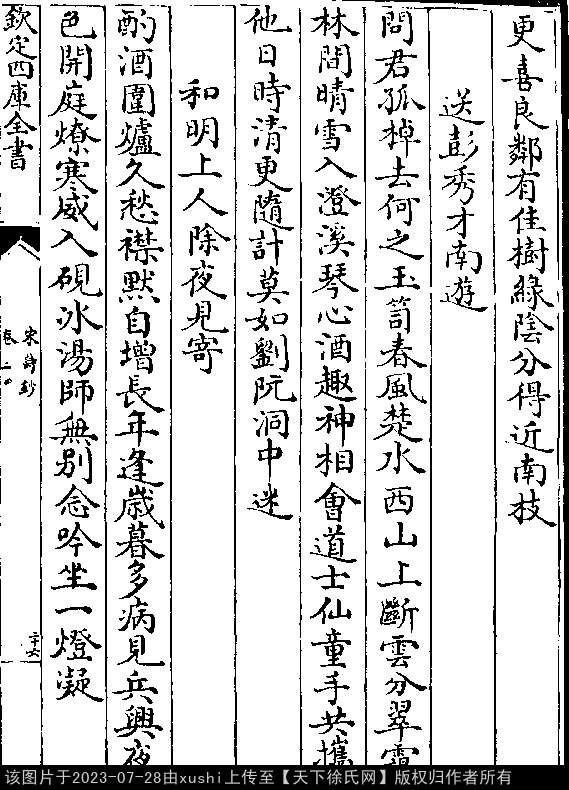 更喜良鄰有佳樹緑陰分得近南技
送彭秀才南遊
問君孤棹去何之玉笥春風楚水西山上斷雲分翠靄
林間晴雪入澄溪琴心酒趣神相會道士仙童手共攜
他日時清更隨計莫如劉阮洞中迷
和明上人除夜見寄
酌酒圍爐久愁襟默自增長年逢歲暮多病見兵興夜
色開庭燎寒威入硯冰湯師無别念吟坐一燈凝
欽定四庫全書
宋詩鈔
二十六
该图片于2023-07-28由xushi上传至【天下徐氏网】版权归作者所有